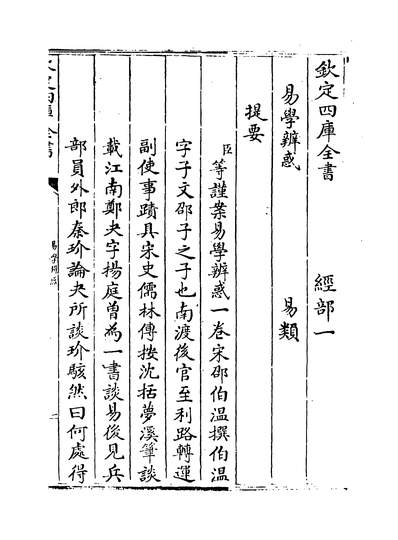 欽定四庫全書　　　經部一
易學辨惑　　　　　易類
提要
臣等謹案易學辨惑一卷宋邵伯温撰伯温
字子文邵子之子也南渡後官至利路轉運
副使事蹟具宋史儒林傳按沈括夢溪筆談
載江南鄭夬字揚庭曾為一書談易後見兵
部員外郎秦玠論夬所談玠駭然曰何處得
易學辨惑